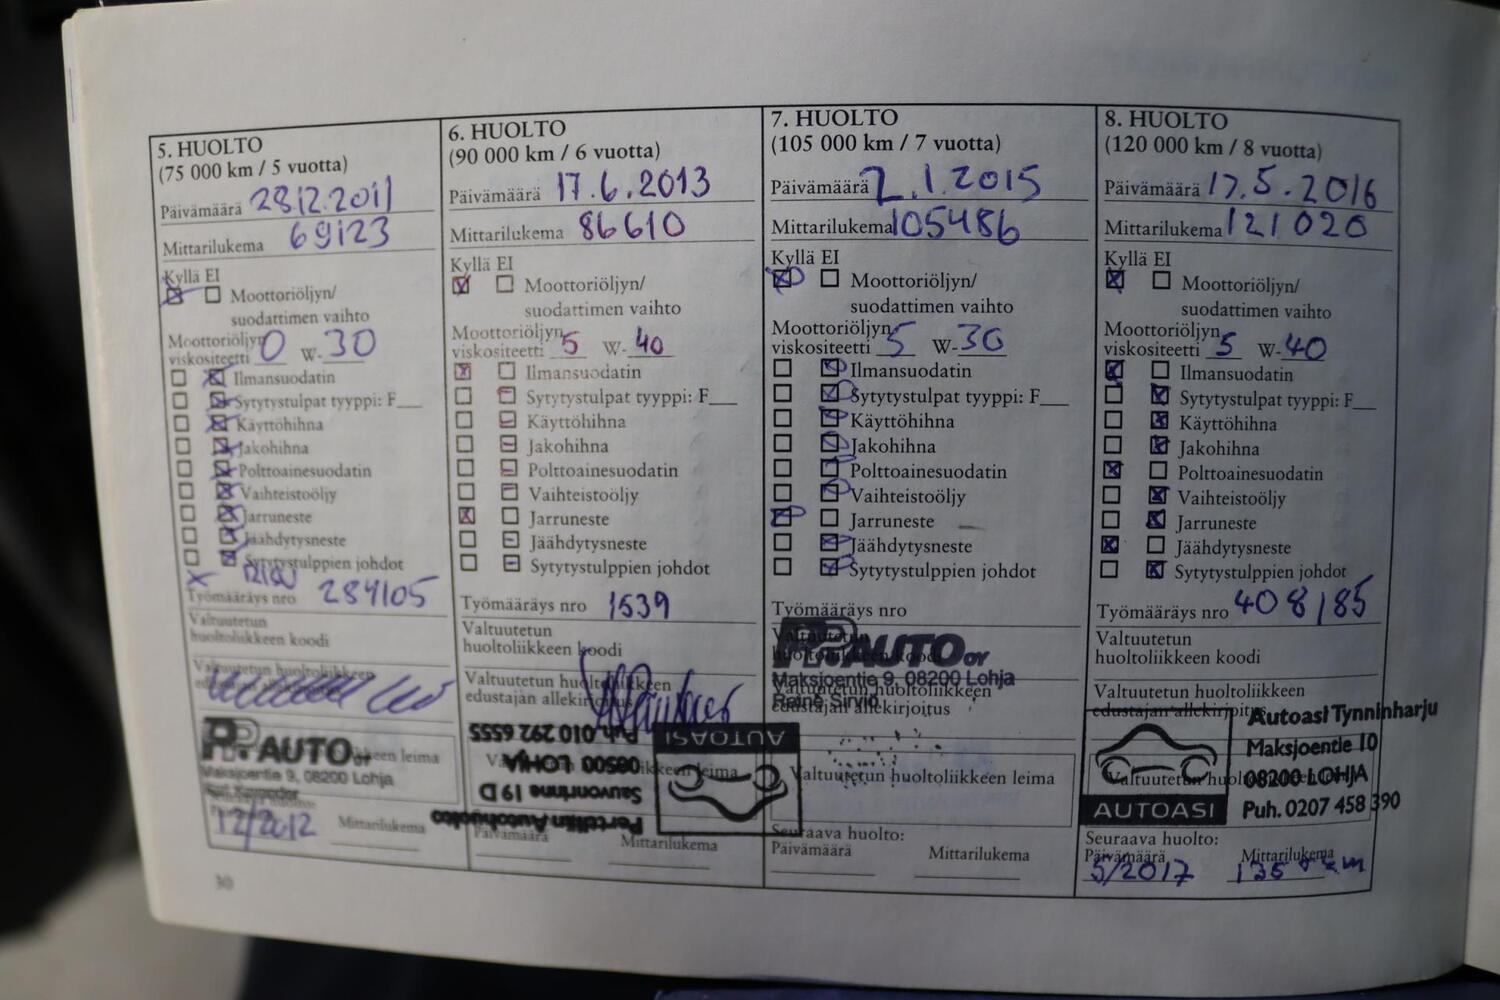 5. HUOLTO
(75 000 km / 5 vuotta)
Päivämäärä 28.12.2011
Mittarilukema 69123
Kyllä EI
Moottoriöljyn/
suodattimen vaihto
Moottoriöljyn
viskositeetti 0 W-30
Ilmansuodatin
Sytytystulpat tyyppi: F___
Käyttöhihna
Jakohihna
Polttoainesuodatin
Vaihteistoöljy
Jarruneste
Jäähdytysneste
Sytytystulppien johdot
Työmääräys nro 284105
Valtuutetun
huoltoliikkeen koodi
Valtuutetun huoltoliikkeen
edustajan allekirjoitus
PP AUTO OY
Maksjoentie 9, 08200 Lohja
12/2012 Mittarilukema
30
6. HUOLTO
(90 000 km / 6 vuotta)
Päivämäärä 17.6.2013
Mittarilukema 86610
Kyllä EI
Moottoriöljyn/
suodattimen vaihto
Moottoriöljyn
viskositeetti 5 W-40
Ilmansuodatin
Sytytystulpat tyyppi: F___
Käyttöhihna
Jakohihna
Polttoainesuodatin
Vaihteistoöljy
Jarruneste
Jäähdytysneste
Sytytystulppien johdot
Työmääräys nro 1539
Valtuutetun
huoltoliikkeen koodi
Valtuutetun huoltoliikkeen
edustajan allekirjoitus
AUTOASI
Pertellin Autohuolto
Sauvonrinne 19 D
08500 LOHJA
Puh. 010 292 6555
Päivämäärä Mittarilukema
7. HUOLTO
(105 000 km / 7 vuotta)
Päivämäärä 2.1.2015
Mittarilukema 105486
Kyllä EI
Moottoriöljyn/
suodattimen vaihto
Moottoriöljyn
viskositeetti 5 W-30
Ilmansuodatin
Sytytystulpat tyyppi: F___
Käyttöhihna
Jakohihna
Polttoainesuodatin
Vaihteistoöljy
Jarruneste
Jäähdytysneste
Sytytystulppien johdot
Työmääräys nro
Valtuutetun
huoltoliikkeen koodi
PP AUTO OY
Maksjoentie 9, 08200 Lohja
Reine Sirviö
Valtuutetun huoltoliikkeen
edustajan allekirjoitus
Valtuutetun huoltoliikkeen leima
Seuraava huolto:
Päivämäärä Mittarilukema
8. HUOLTO
(120 000 km / 8 vuotta)
Päivämäärä 17.5.2016
Mittarilukema 121020
Kyllä EI
Moottoriöljyn/
suodattimen vaihto
Moottoriöljyn
viskositeetti 5 W-40
Ilmansuodatin
Sytytystulpat tyyppi: F___
Käyttöhihna
Jakohihna
Polttoainesuodatin
Vaihteistoöljy
Jarruneste
Jäähdytysneste
Sytytystulppien johdot
Työmääräys nro 408185
Valtuutetun
huoltoliikkeen koodi
Valtuutetun huoltoliikkeen
edustajan allekirjoitus
AUTOASI
Autoasi Tynninharju
Maksjoentie 10
08200 LOHJA
Puh. 0207 458 390
Seuraava huolto:
Päivämäärä Mittarilukema
5/2017 135 tkm